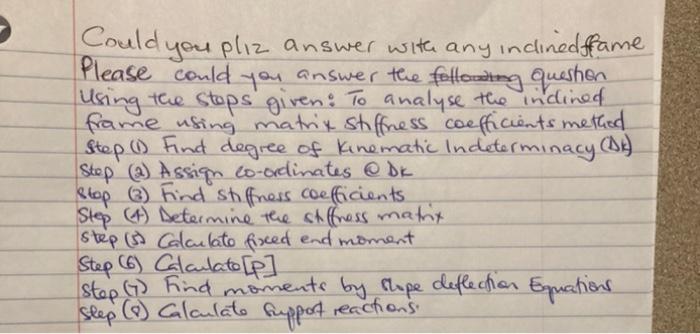 Could you pliz answer with any inclined frame
Please could you answer the following question
Using the steps given: To analyse the inclined
frame using matrix stiffness coefficients method
Step (1) Find degree of Kinematic Indeterminacy (Dk)
Step (2) Assign co-ordinates @ Dk
Step (3) Find stiffness coefficients
Step (4) Determine the stiffness matrix
Step (5) Calculate fixed end moment
Step (6) Calculate [P]
Step (7) Find moments by slope deflection Equations
Step (8) Calculate Support reactions.